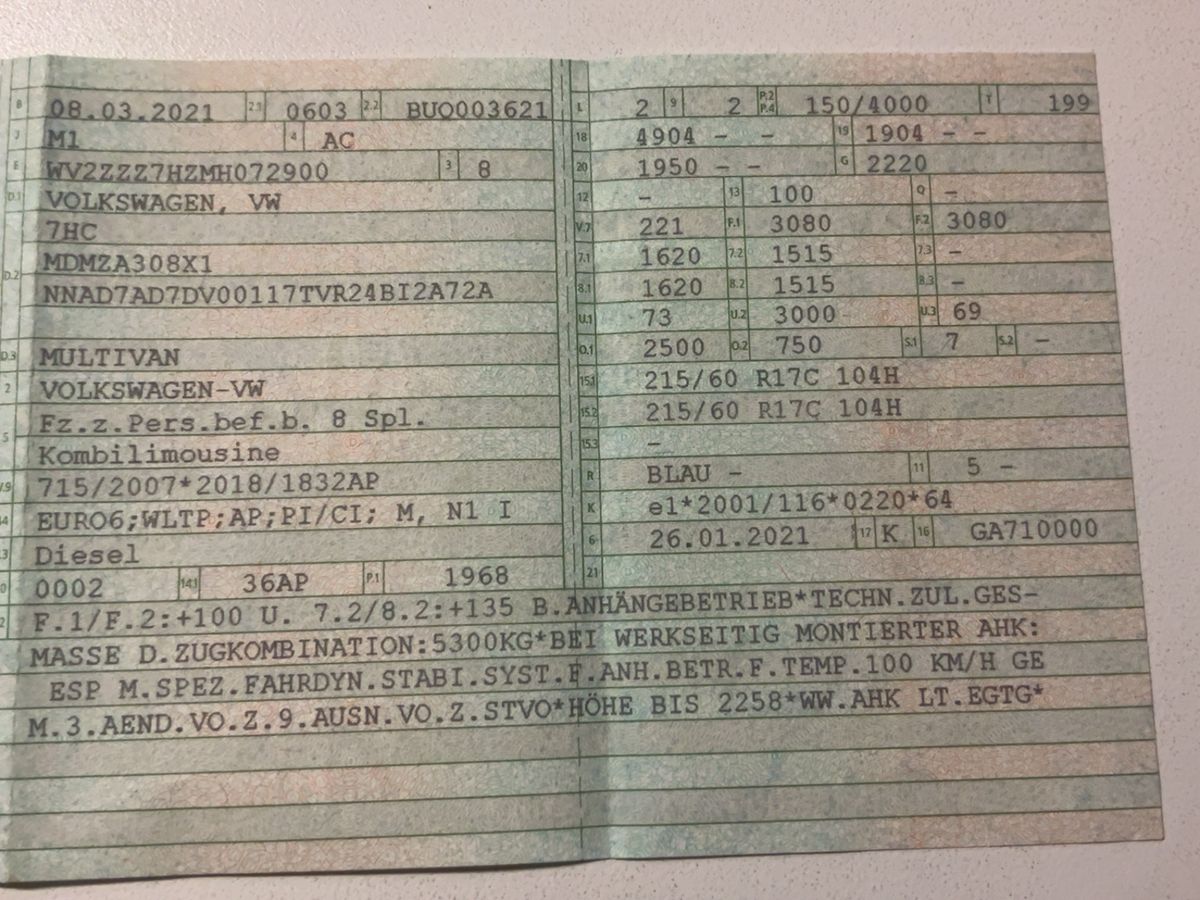 B 08.03.2021 2.1 0603 2.2 BUQ003621
J M1 4 AC
E WV2ZZZ7HZMH072900 3 8
D.1 VOLKSWAGEN, VW
7HC
D.2 MDMZA308X1
NNAD7AD7DV00117TVR24BI2A72A
D.3 MULTIVAN
2 VOLKSWAGEN-VW
5 Fz.z.Pers.bef.b. 8 Spl.
Kombilimousine
V.9 715/2007*2018/1832AP
14 EURO6;WLTP;AP;PI/CI; M, N1 I
P.3 Diesel
10 0002 14.1 36AP P.1 1968
L 2 9 2 P.2 P.4 150/4000 T 199
18 4904 - - 19 1904 - -
20 1950 - - G 2220
12 - 13 100 Q -
V.7 221 F.1 3080 F.2 3080
7.1 1620 7.2 1515 7.3 -
8.1 1620 8.2 1515 8.3 -
U.1 73 U.2 3000 U.3 69
O.1 2500 O.2 750 S.1 7 S.2 -
15.1 215/60 R17C 104H
15.2 215/60 R17C 104H
15.3 -
R BLAU - 11 5 -
K e1*2001/116*0220*64
6 26.01.2021 17 K 16 GA710000
21
22 F.1/F.2:+100 U. 7.2/8.2:+135 B.ANHÄNGEBETRIEB*TECHN.ZUL.GES-
MASSE D.ZUGKOMBINATION:5300KG*BEI WERKSEITIG MONTIERTER AHK:
ESP M.SPEZ.FAHRDYN.STABI.SYST.F.ANH.BETR.F.TEMP.100 KM/H GE
M.3.AEND.VO.Z.9.AUSN.VO.Z.STVO*HÖHE BIS 2258*WW.AHK LT.EGTG*